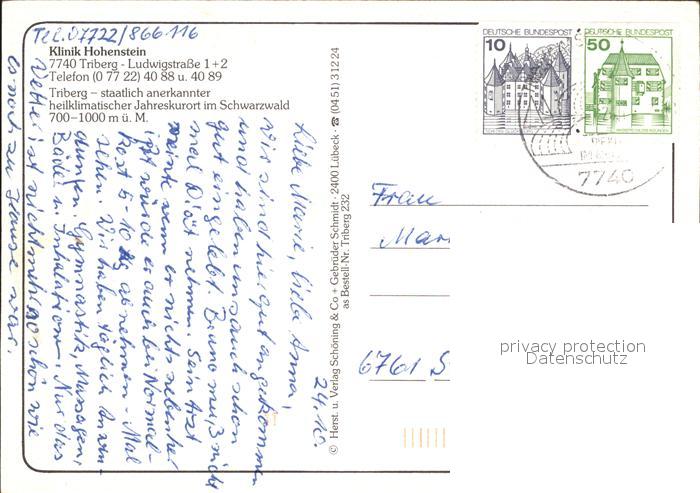 Tel. 07722/866116
Klinik Hohenstein
7740 Triberg - Ludwigstraße 1+2
Telefon (0 77 22) 40 88 u. 40 89
Triberg – staatlich anerkannter
heilklimatischer Jahreskurort im Schwarzwald
700–1000 m ü. M.
24.10.
Liebe Marie, liebe Anna,
wir sind hier gut angekommen
und haben uns auch schon
gut eingelebt. Bruno muß nicht
mal Diät nehmen. Sein Arzt
meinte wenn er nicht nebenher
ißt würde er auch bei Normal-
kost 5-10 kg abnehmen - Mal
sehn. Wir haben täglich Anwen-
dungen. Gymnastik, Massagen,
Bäder u. Inhalationen. Nur das
Wetter ist nicht mehr so schön wie
es noch zu Hause war.
© Herst. u. Verlag Schöning & Co + Gebrüder Schmidt · 2400 Lübeck · ☎ (04 51) 3 12 24
as Bestell-Nr. Triberg 232
DEUTSCHE BUNDESPOST
10
DEUTSCHE BUNDESPOST
50
7740
Frau
Mar
6761 S
privacy protection
Datenschutz